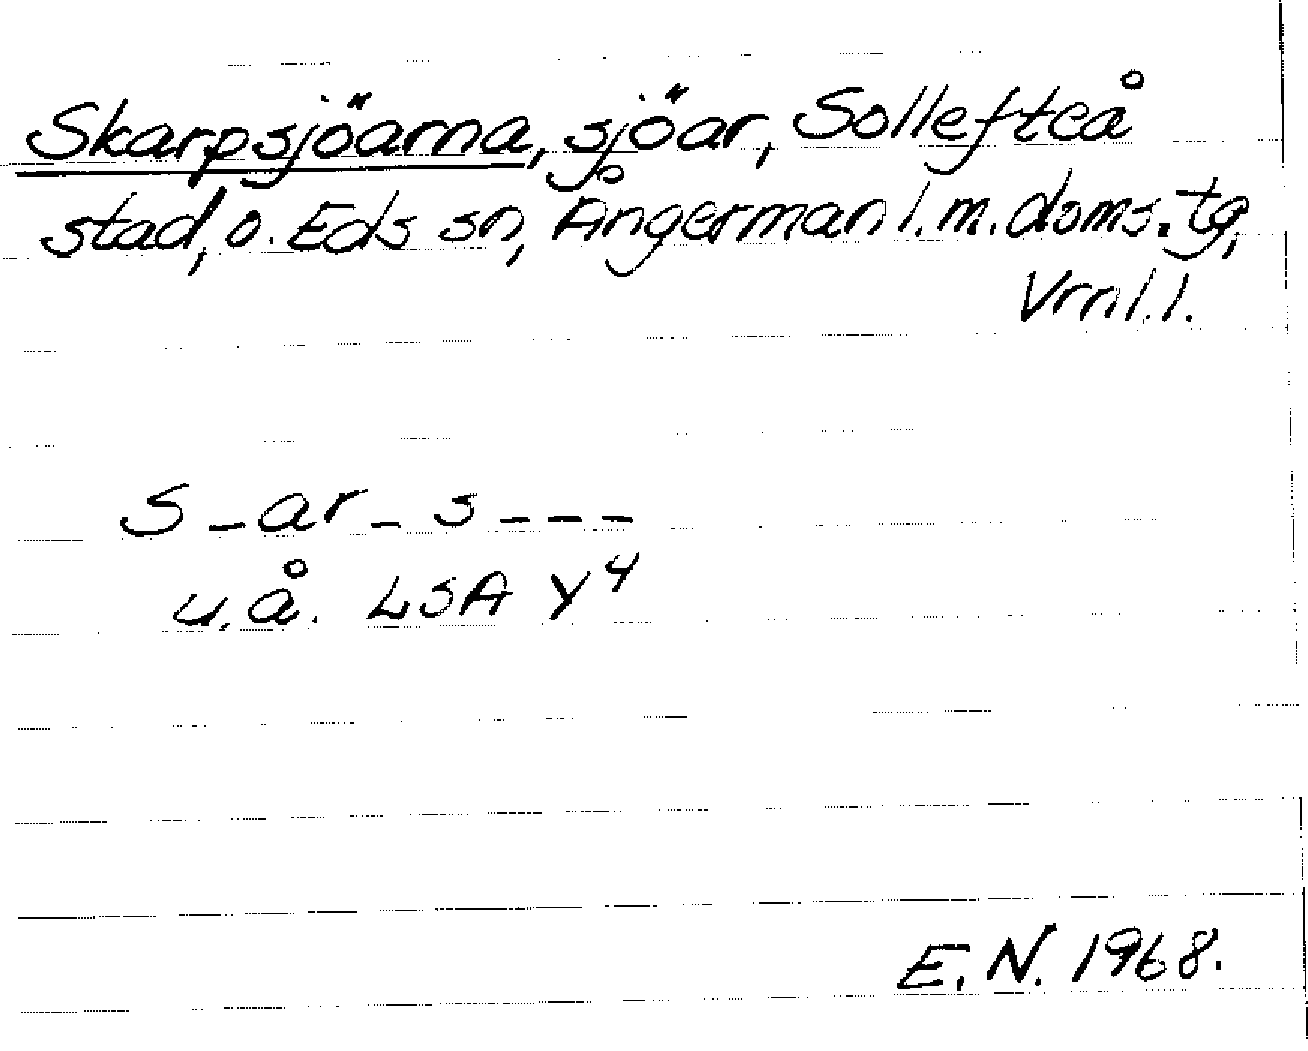 Skarpsjöarna, sjöar, Sollefteå
stad, o. Eds sn, Ångermanl. m. doms. tg,
Vrnl. l.
S-ar-s---
u.å. LSA Y4
E.N. 1968.